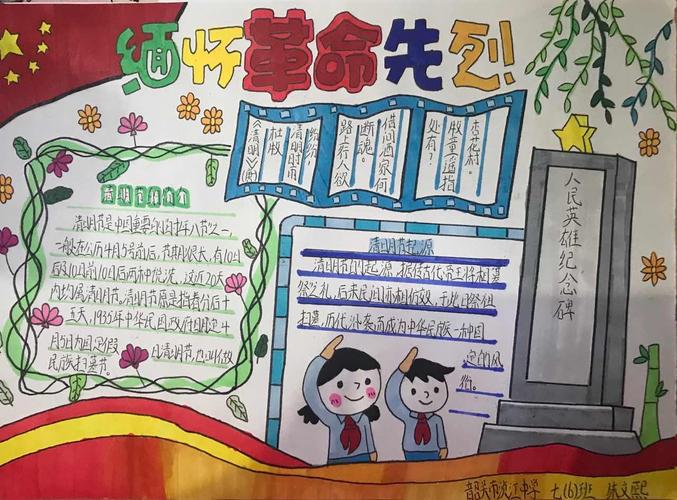 缅怀革命先烈!
《清明》(唐)
杜牧
清明时雨
纷纷,
路上行人欲
断魂。
借问酒家何
处有?
牧童遥指
杏花村。
清明节简介
清明节是中国重要的传统八节之一,
一般在公历4月5号前后,节期很长,有10日
后及10日前10日后两种说法,这近20天
内均属清明节。清明节原是指春分后十
五天,1935年中华民国政府明定4
月5日为国定假日清明节,也叫做
民族扫墓节。
清明节起源
清明节的起源,据传古代帝王将相墓
祭之礼,后来民间亦相仿效,于此日祭祖
扫墓,历代沿袭而成为中华民族一种固
定的风
俗。
人民英雄纪念碑
韶关市浈江中学 七(6)班 文熙